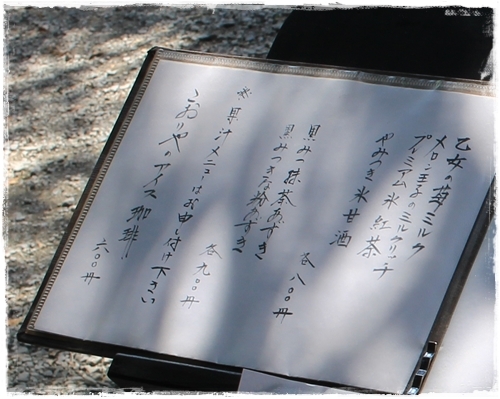 乙女の苺ミルク
メロン王子のミルクリッチ
プレミアム氷 紅茶
やみつき氷 甘酒
各 八〇〇円
黒みつ抹茶あずき
黒みつきな粉あずき
各 九〇〇円
※ 果汁メニューはお申し付け下さい
こおりやのアイス珈琲
六〇〇円